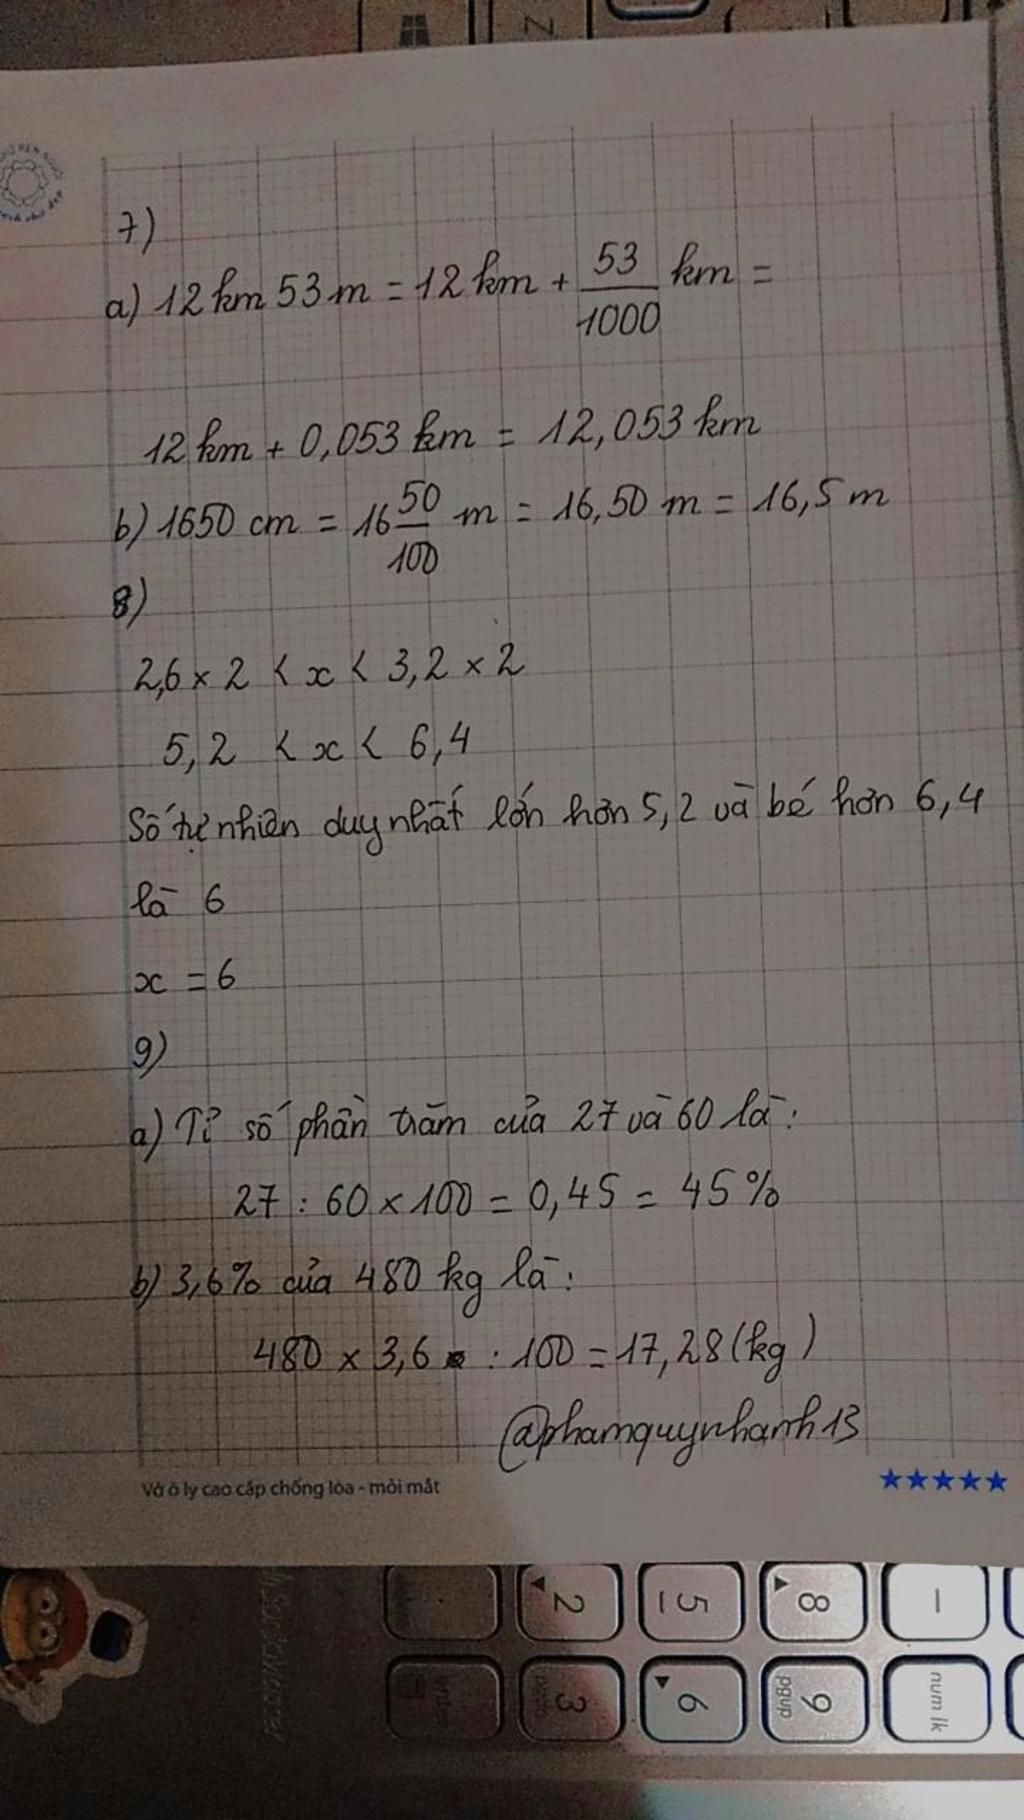 7)
a) 12 km 53 m = 12 km + 53/1000 km =
12 km + 0,053 km = 12,053 km
b) 1650 cm = 16 50/100 m = 16,50 m = 16,5 m
8)
2,6 × 2 < x < 3,2 × 2
5,2 < x < 6,4
Số tự nhiên duy nhất lớn hơn 5,2 và bé hơn 6,4
là 6
x = 6
9)
a) Tỉ số phần trăm của 27 và 60 là:
27 : 60 × 100 = 0,45 = 45 %
b) 3,6% của 480 kg là:
480 × 3,6 : 100 = 17,28 (kg)
@phamquynhanh13
Vở ô ly cao cấp chống lóa - mỏi mắt
2 5 8 -
3 6 9 pgup num lk